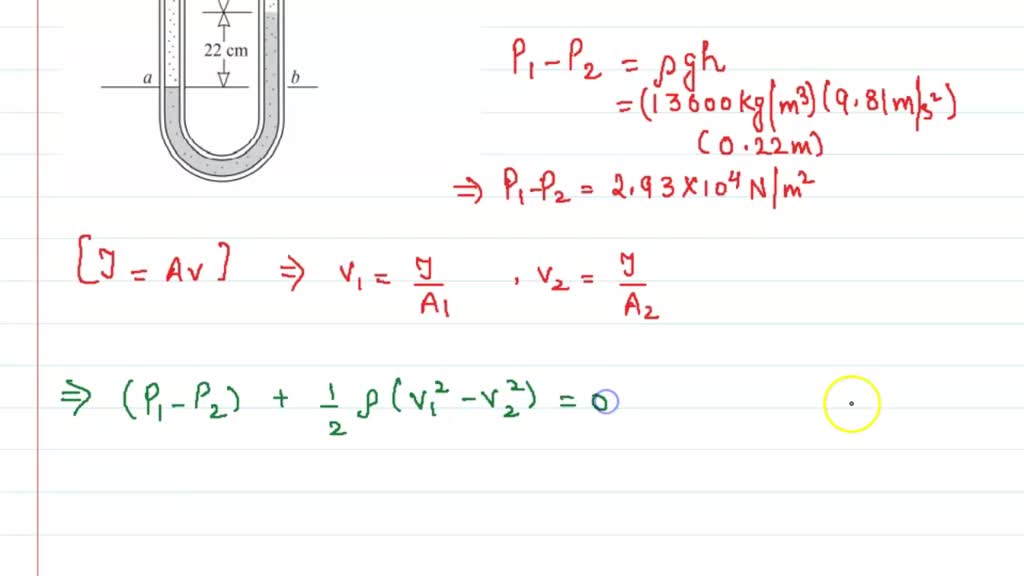 22 cm
a b
P₁-P₂ = ρgh
= (13600kg/m³)(9.81m/s²)
(0.22m)
⇒ P₁-P₂ = 2.93×10⁴ N/m²
[J = Av] ⇒ v₁ = J/A₁ , v₂ = J/A₂
⇒ (P₁-P₂) + 1/2 ρ(v₁²-v₂²) = 0